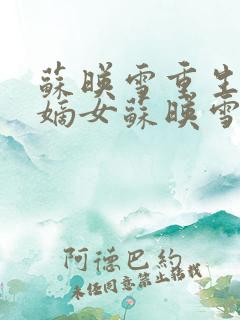 蘇暎雪重生
嫡女蘇暎雪
阿德巴約
未經同意禁止搭載